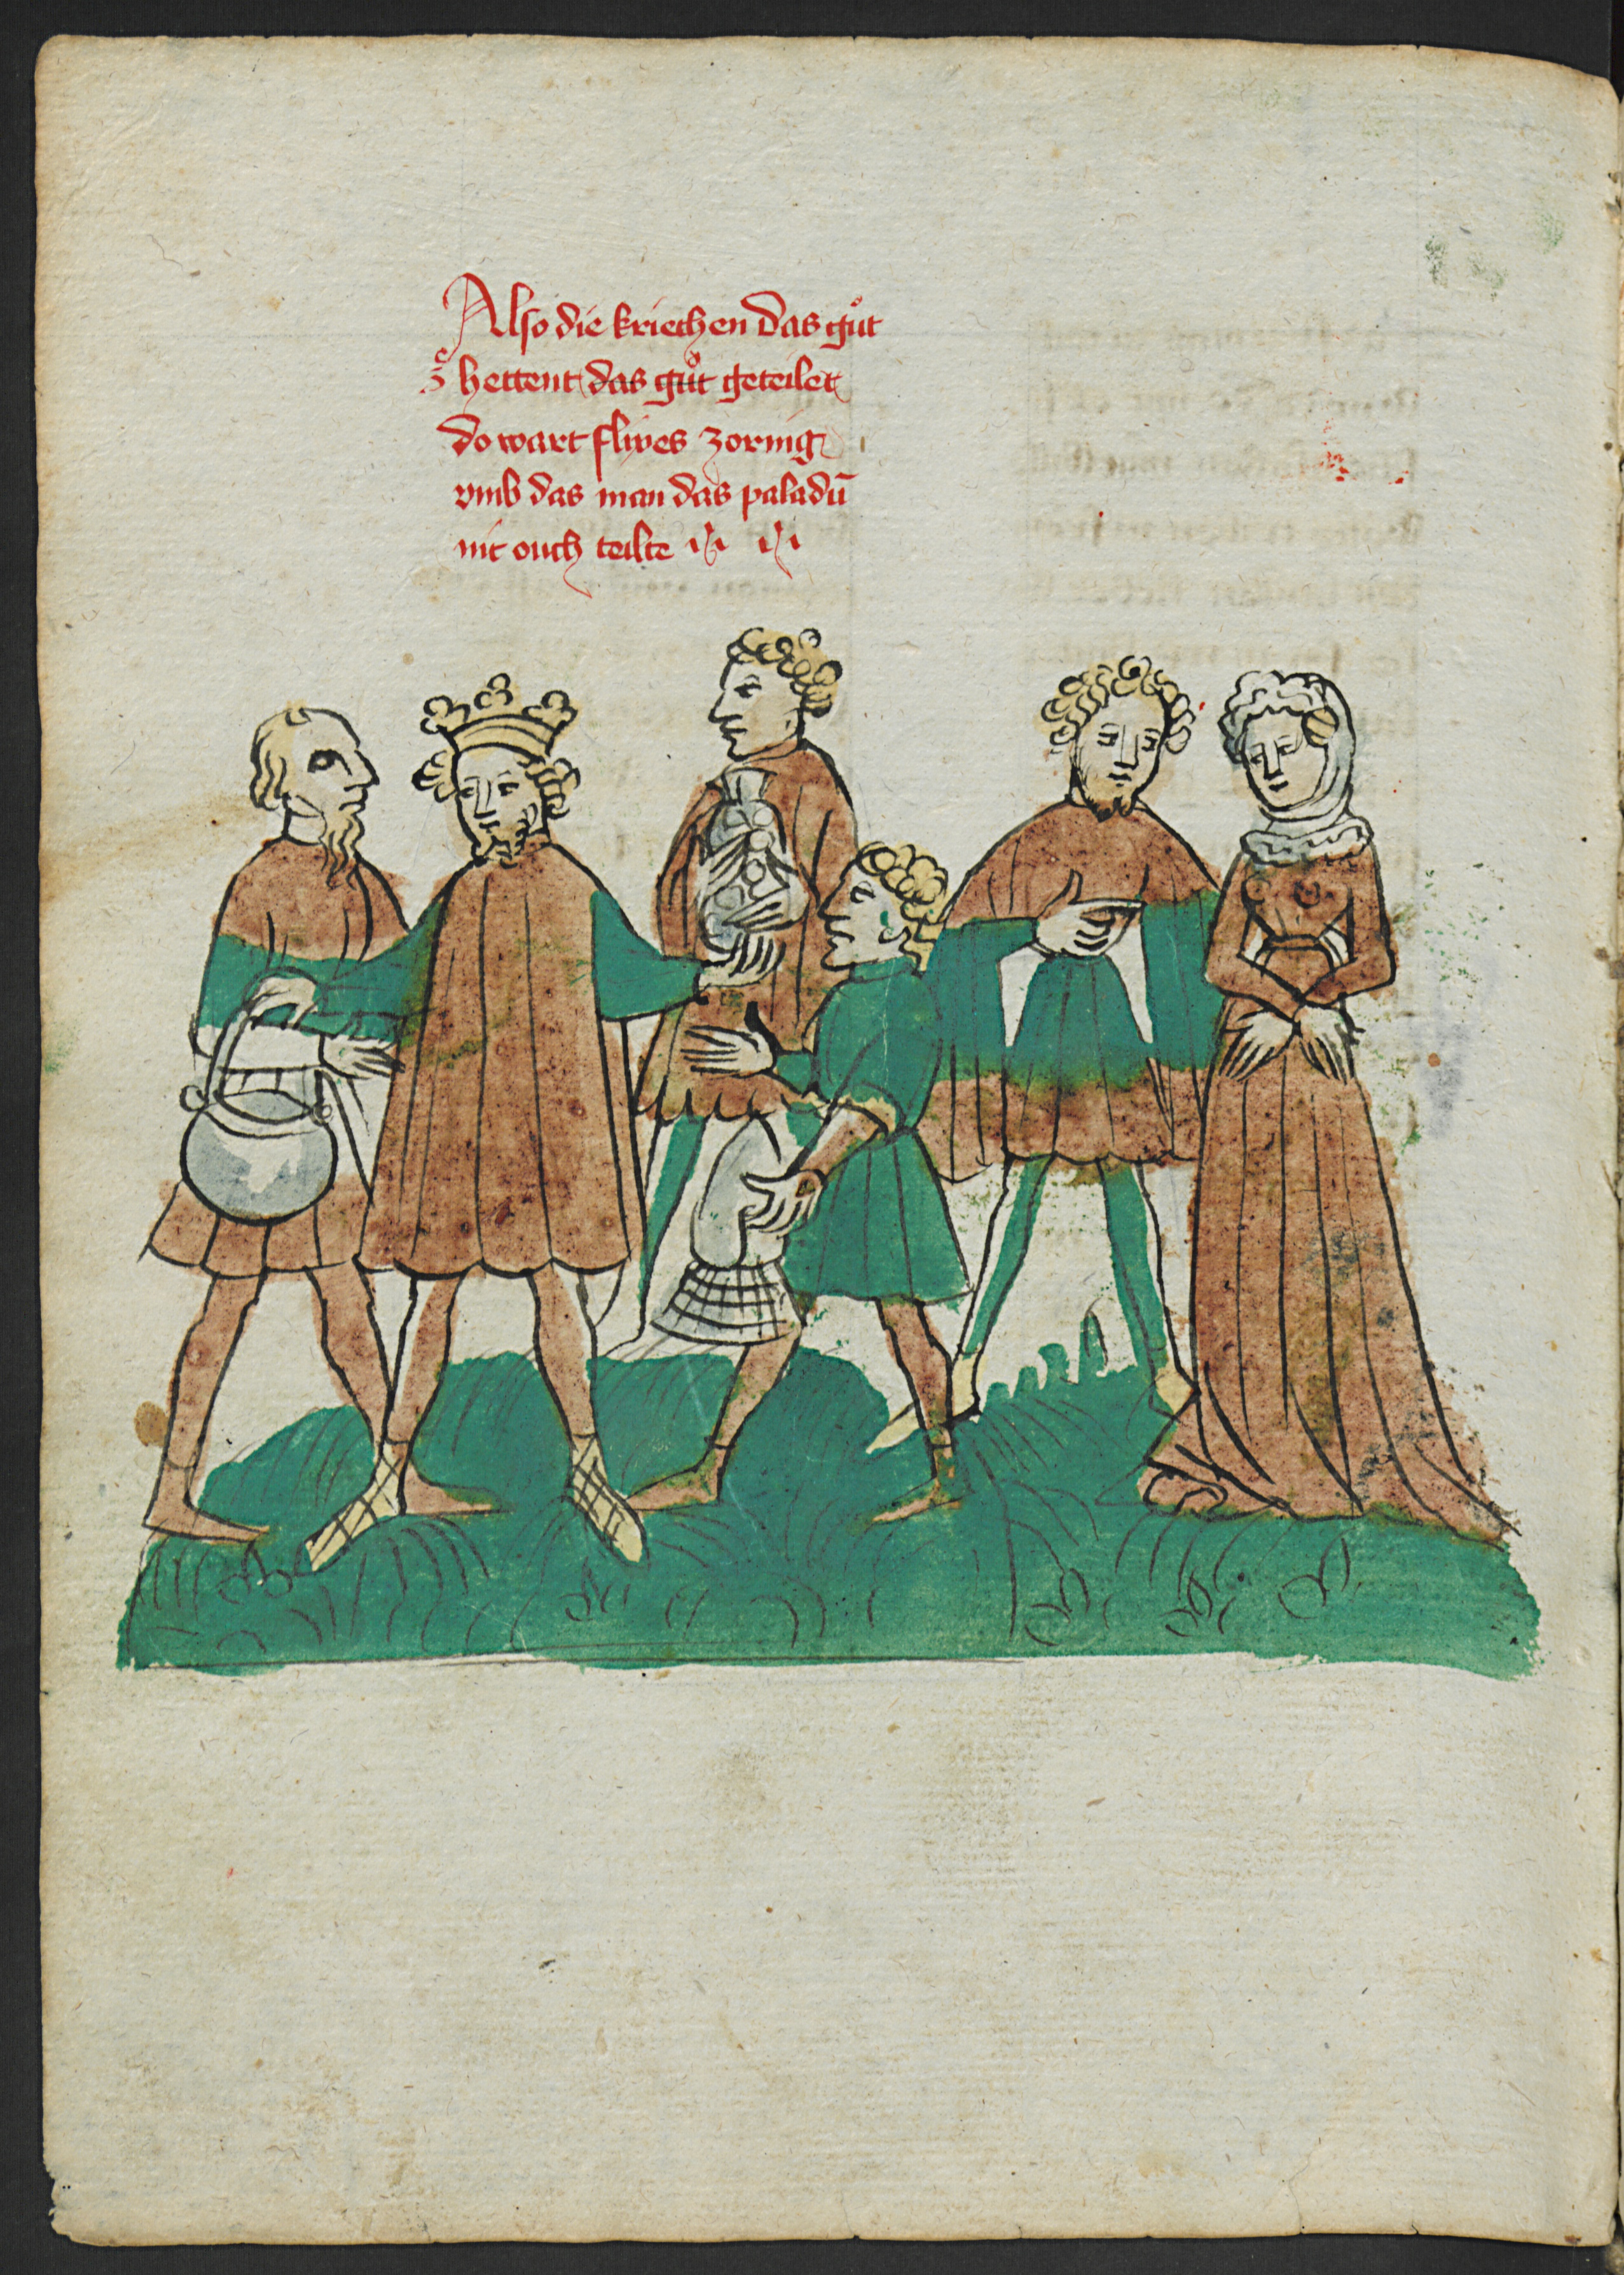 Also die kriechen das guͦt
hettent das guͦt geteilet
do wart flixes zornig
vmb das man das paladū
nit ouch teilte